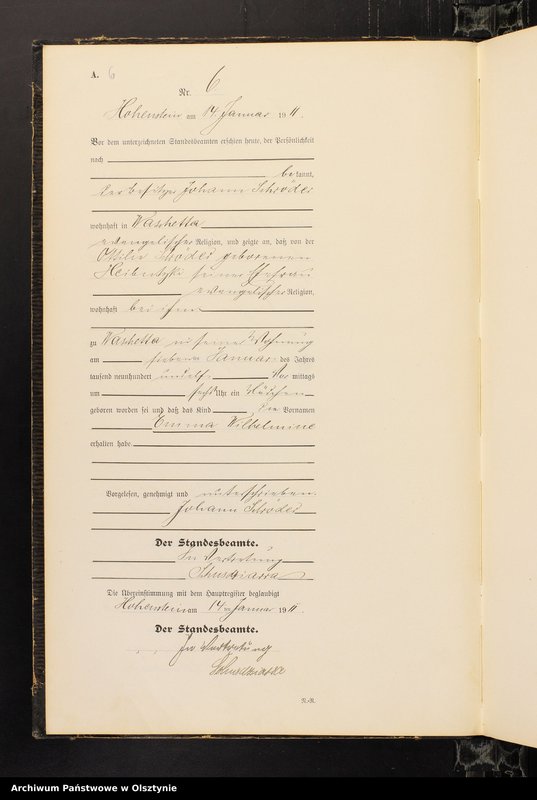 A. 6
Nr. 6
Hohenstein am 14 Januar 19 11.
Vor dem unterzeichneten Standesbeamten erschien heute, der Persönlichkeit
nach
be kannt,
der Besitzer Johann Schröder
wohnhaft in Waschetta
evangelischer Religion, und zeigte an, daß von der
Ottilie Schröder geborenen
seiner Ehefrau
evangelischer Religion,
wohnhaft bei ihm
zu Waschetta in seiner Wohnung
am sieben Januar des Jahres
tausend neunhundert und elf Vor mittags
um sechs Uhr ein Mädchen
geboren worden sei und daß das Kind die Vornamen
Emma Wilhelmine
erhalten habe.
Vorgelesen, genehmigt und unterschrieben.
Johann Schröder
Der Standesbeamte.
In Vertretung
Die Übereinstimmung mit dem Hauptregister beglaubigt
Hohenstein am 14 Januar 19 11.
Der Standesbeamte.
In Vertretung
N.-R.
Archiwum Państwowe w Olsztynie